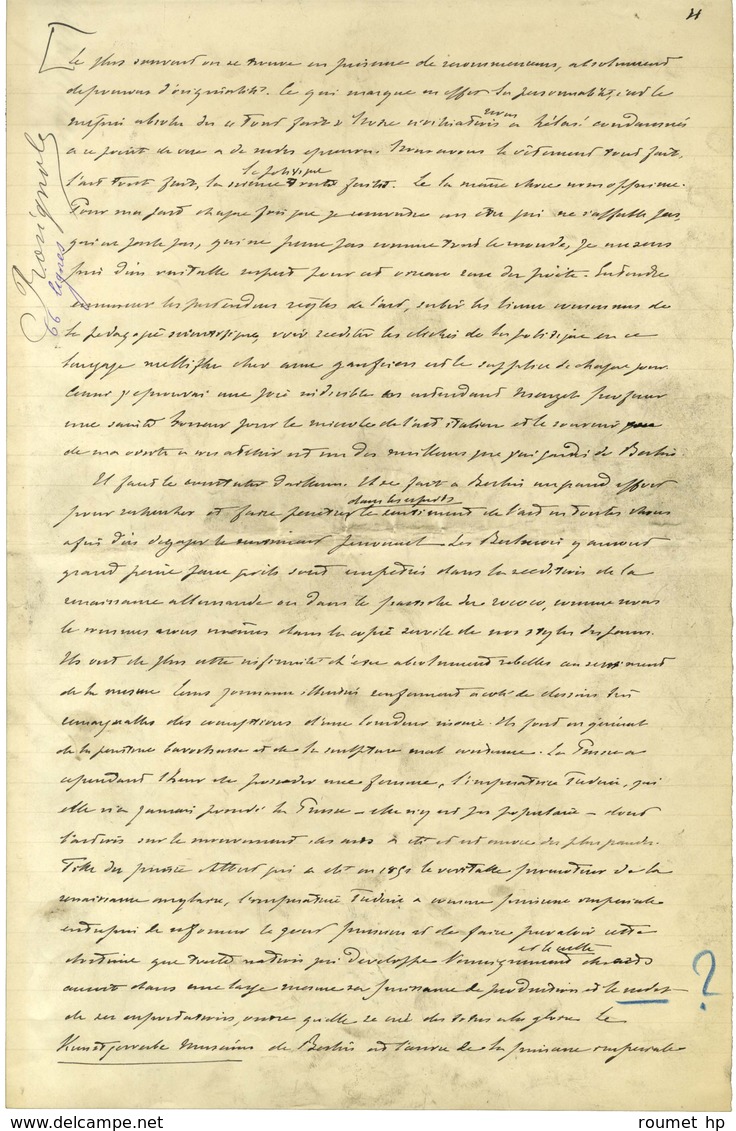 4
Rossignol
66 lignes
Le plus souvent on se trouve en présence de absolument
dépourvus d'originalité. Ce qui marque en effet la personnalité, c'est le
mépris absolu du « tout fait ». Notre civilisation nous a hélas! condamnés
à ce point de vue à de rudes épreuves. Nous avons le vêtement tout fait,
l'art tout fait, la science la politique toute faite. Et la même chose nous opprime.
Pour ma part chaque fois que je rencontre un être qui ne s'affuble pas,
qui ne parle pas, qui ne pense pas comme tout le monde, je me sens
pris d'un véritable respect pour cet oiseau rare du poète. Entendre
les prétendues règles de l'art, subir les lieux communs de
la pédagogie scientifique, voir rééditer les clichés de la politique en ce
langage melliflu cher aux est le supplice de chaque jour.
j'éprouvai une joie indicible en entendant Menzel professer
une sainte horreur pour le miracle de l'art italien et le souvenir
de ma visite à son atelier est un des meilleurs que j'ai gardés de Berlin.
Il faut le constater d'ailleurs. Il se fait à Berlin un grand effort
pour rechercher et faire pénétrer dans les esprits le sentiment de l'art en toutes choses
afin d'en dégager le sentiment personnel. Les Berlinois y auront
grand peine parce qu'ils sont empêtrés dans la réédition de la
renaissance allemande ou dans le pastiche du rococo, comme nous
le sommes nous mêmes dans la copie servile de nos styles défunts.
Ils ont de plus cette infirmité d'être absolument rebelles au sentiment
de la mesure. Leurs journaux illustrés renferment à côté de dessins très
remarquables des conceptions d'une lourdeur inouïe. Ils font en général
de la peinture et de la sculpture mal. La Prusse a
cependant l'heur de posséder une femme, l'impératrice Frédéric, qui
elle n'a jamais la Prusse – elle n'y est pas populaire – dont
l'action sur le mouvement des arts a été et est encore des plus grandes.
Fille du prince Albert qui a été en 1851 le véritable promoteur de la
renaissance anglaise, l'impératrice Frédéric a comme princesse impériale
entrepris de réformer le goût prussien et de faire prévaloir cette
doctrine que toute nation qui développe l'enseignement et le culte des arts
accroît dans une large mesure sa puissance de production et le
de ses exportations, outre qu'elle se crée des titres à la gloire. Le
Kunstgewerbe Museum de Berlin est l'œuvre de la princesse impériale
?
roumet hp